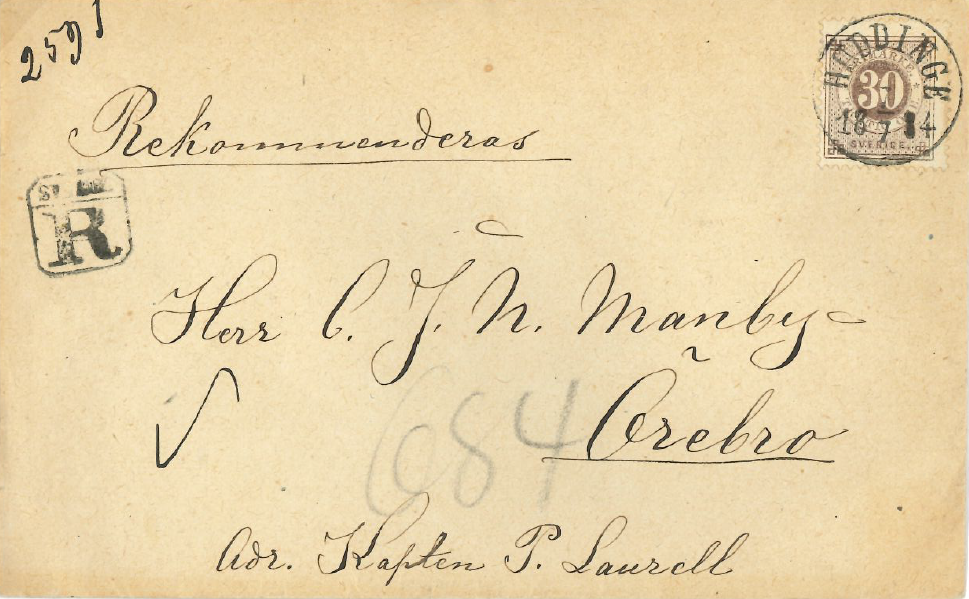 2591
HUDDINGE
1
18 7 84
30
SVERIGE
Rekommenderas
R
Herr C. J. N. Manby
Örebro
684
Adr. Kapten P. Laurell